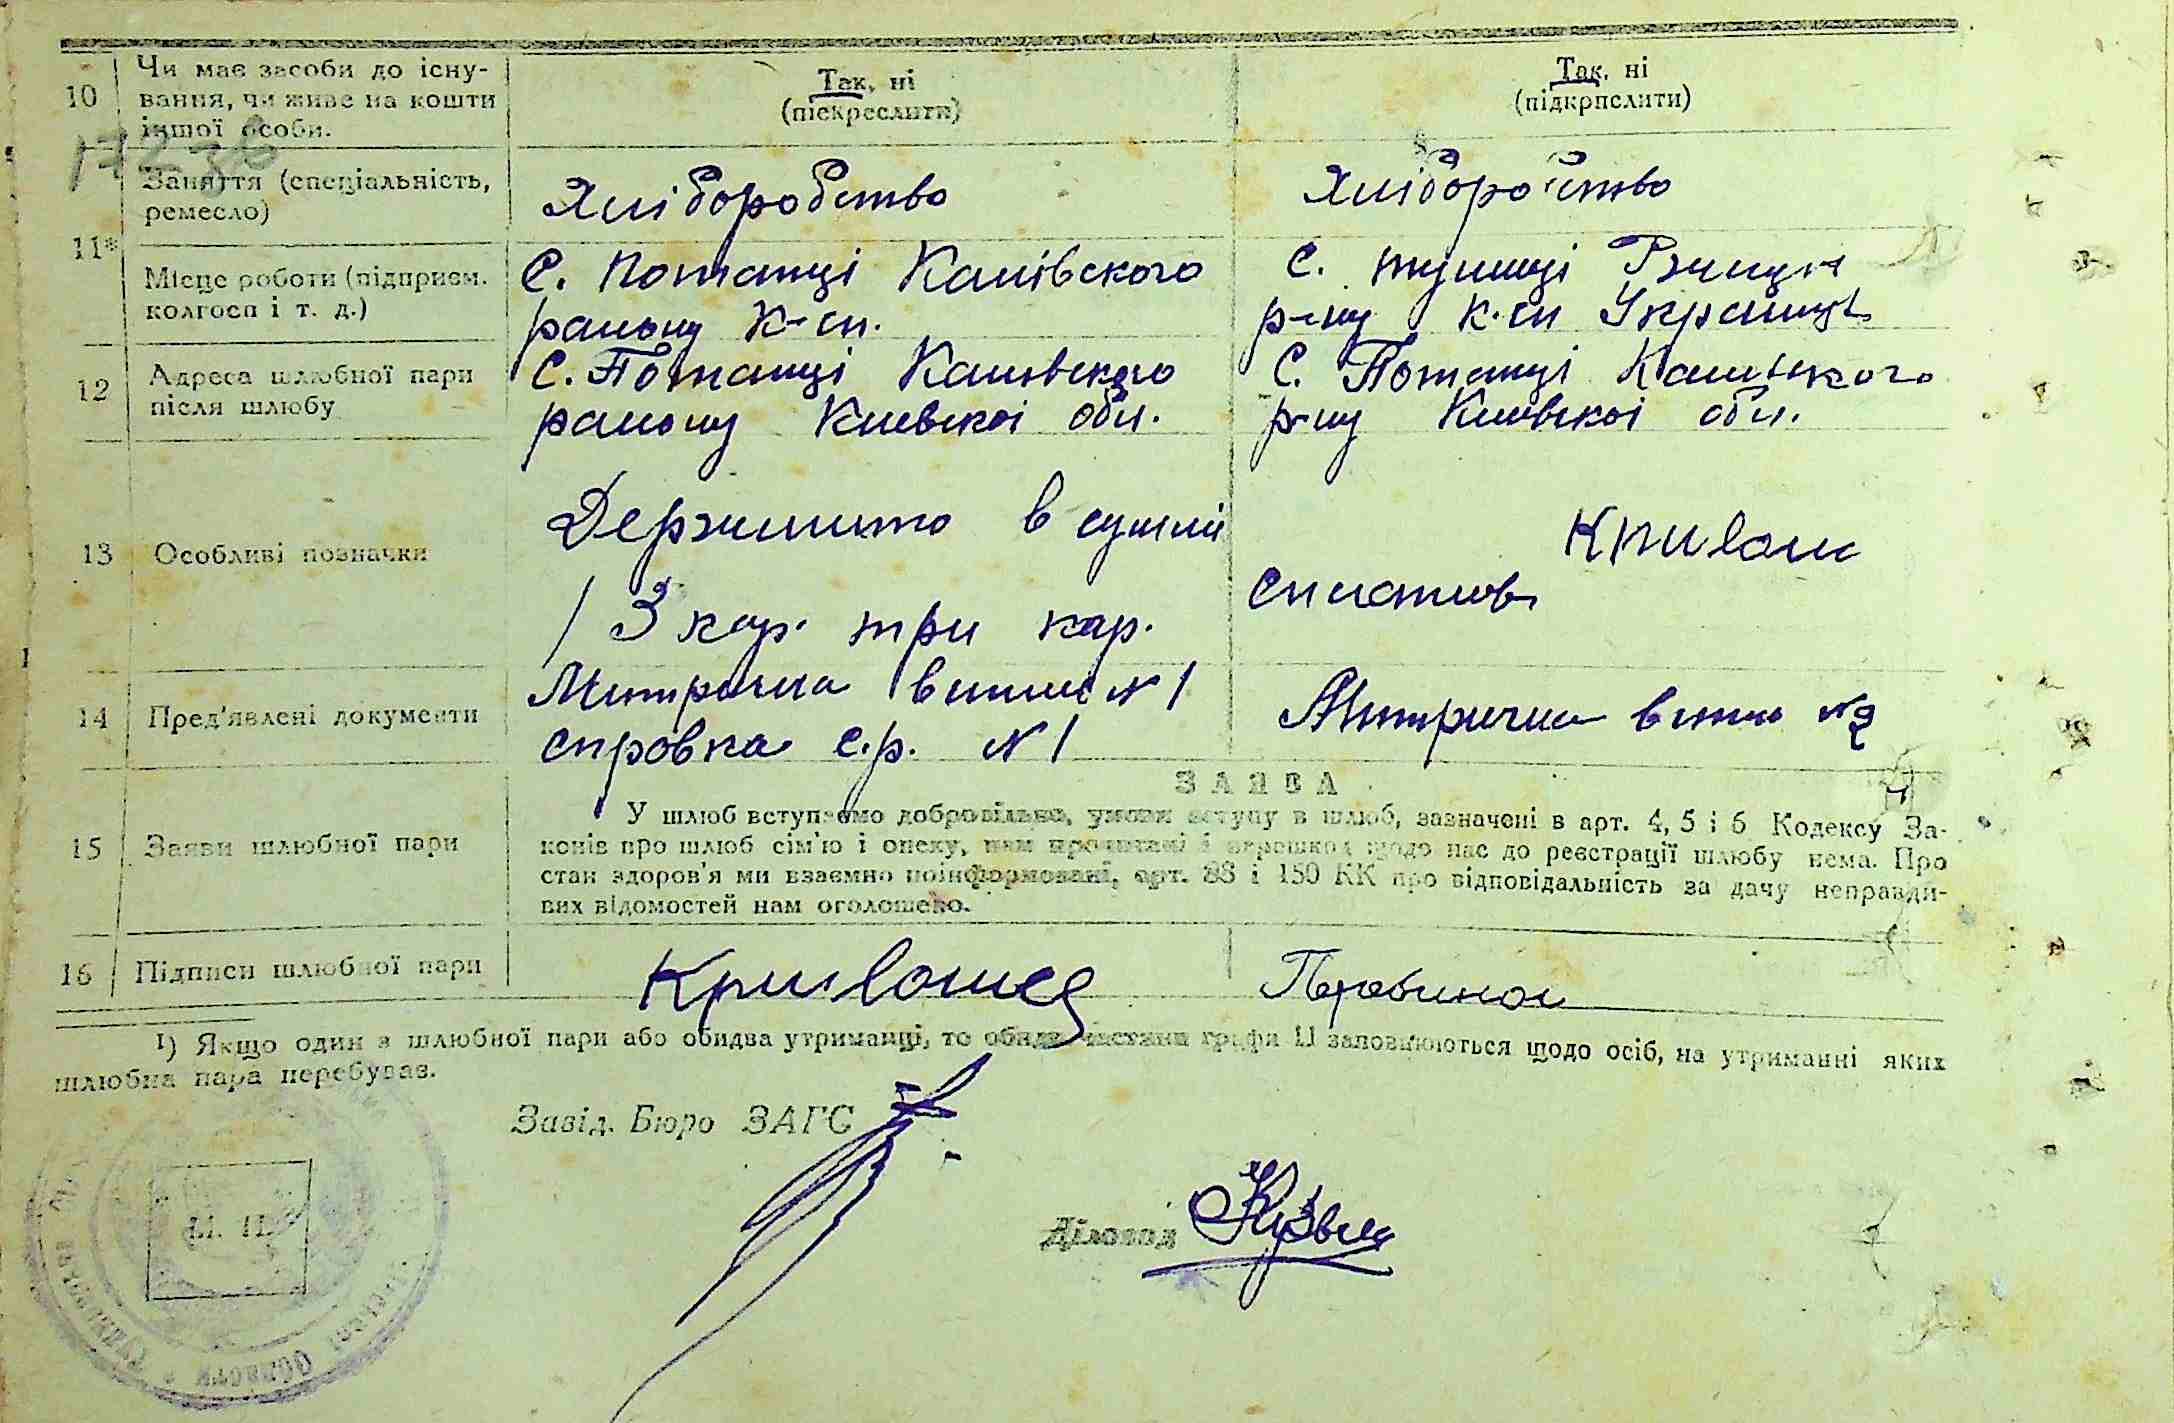 10
Чи має засоби до існу-
вання, чи живе на кошти
іншої особи.
Так, ні
(піскреслити)
Так, ні
(підкрпслити)
11*
Заняття (спеціальність,
ремесло)
Хліборобство
Хліборобство
Місце роботи (підприєм.
колгосп і т. д.)
С. Потапці Канівского
району К-си.
С.
р-ну к-си
12
Адреса шлюбної пари
після шлюбу
С. Потапці Канівского
району Киевскої обл.
С. Потапці Канівского
р-ну Київскої обл.
13
Особливі позначки
в сумі
3 кар. три кар.
14
Пред'явлені документи
Митрична випис N 1
справка с.р. N 1
Митрична випис N2
ЗАЯВА
15
Заяви шлюбної пари
У шлюб вступаємо добровільно, умови вступу в шлюб, зазначені в арт. 4, 5 і 6 Кодексу За-
конів про шлюб сім'ю і опеку, нам прочитані і перешкод щодо нас до реєстрації шлюбу нема. Про
стан здоров'я ми взаємно поінформовані, арт. 88 і 150 КК про відповідальність за дачу неправди-
вих відомостей нам оголошено.
16
Підписи шлюбної пари
1) Якщо один з шлюбної пари або обидва утриманці, то обидві частини графи 11 заповнюються щодо осіб, на утриманні яких
шлюбна пара перебуває.
Завід. Бюро ЗАГС
Діловод